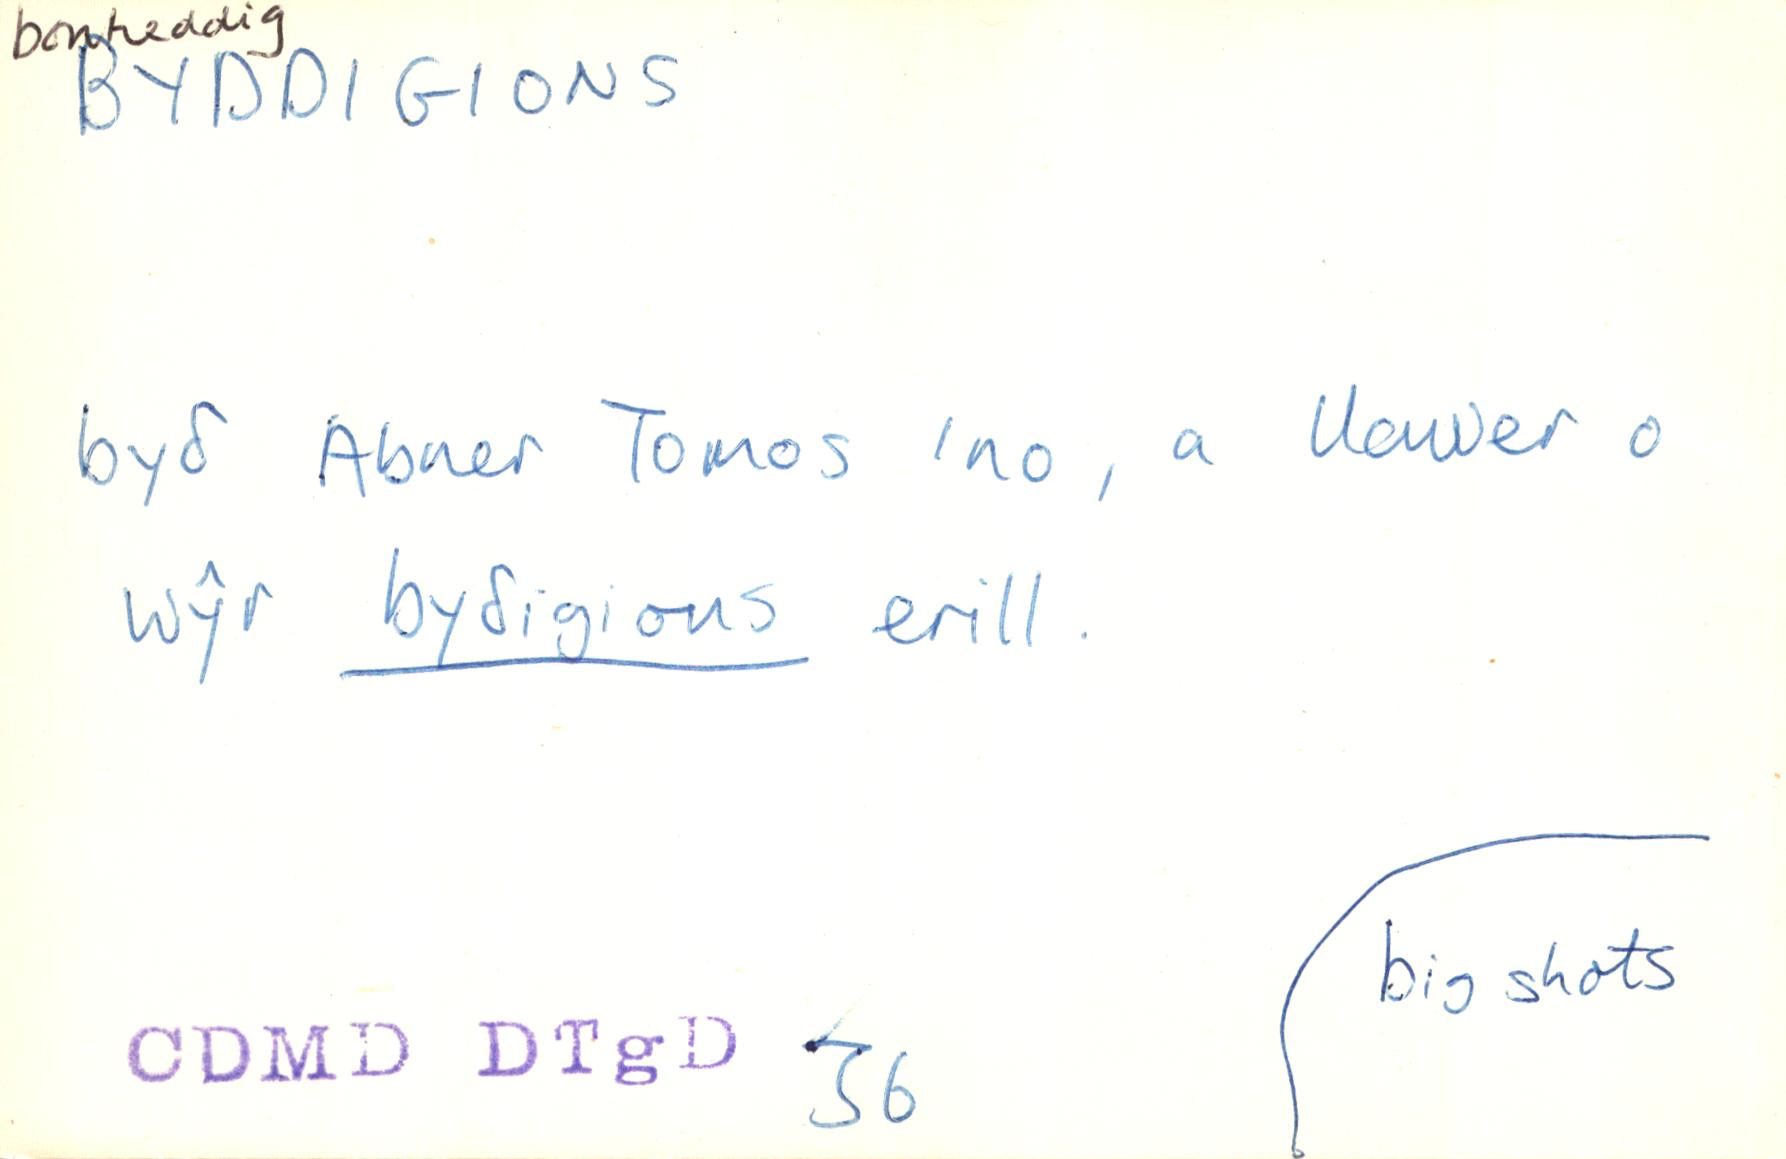 bonheddig
BYDDIGIONS
byδ Abner Tomos 'no, a llawer o
wŷr byδigions erill.
big shots
CDMD DTgD 36